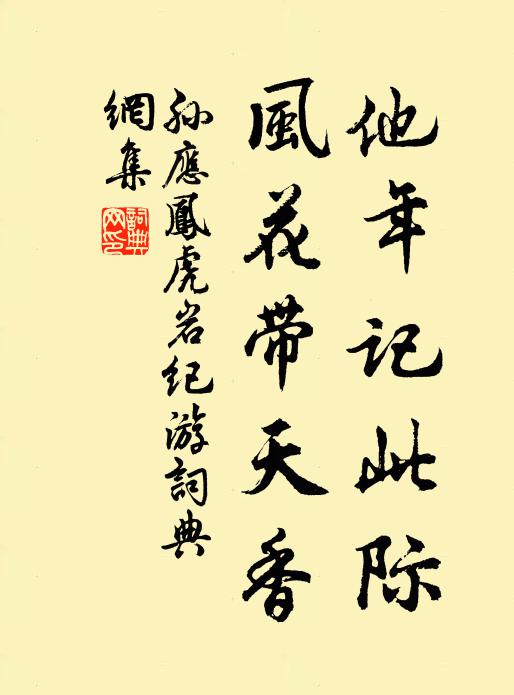 他年记此际
風花带天香
孙應鳳虎岩纪游詞典
網集
詞典
网印